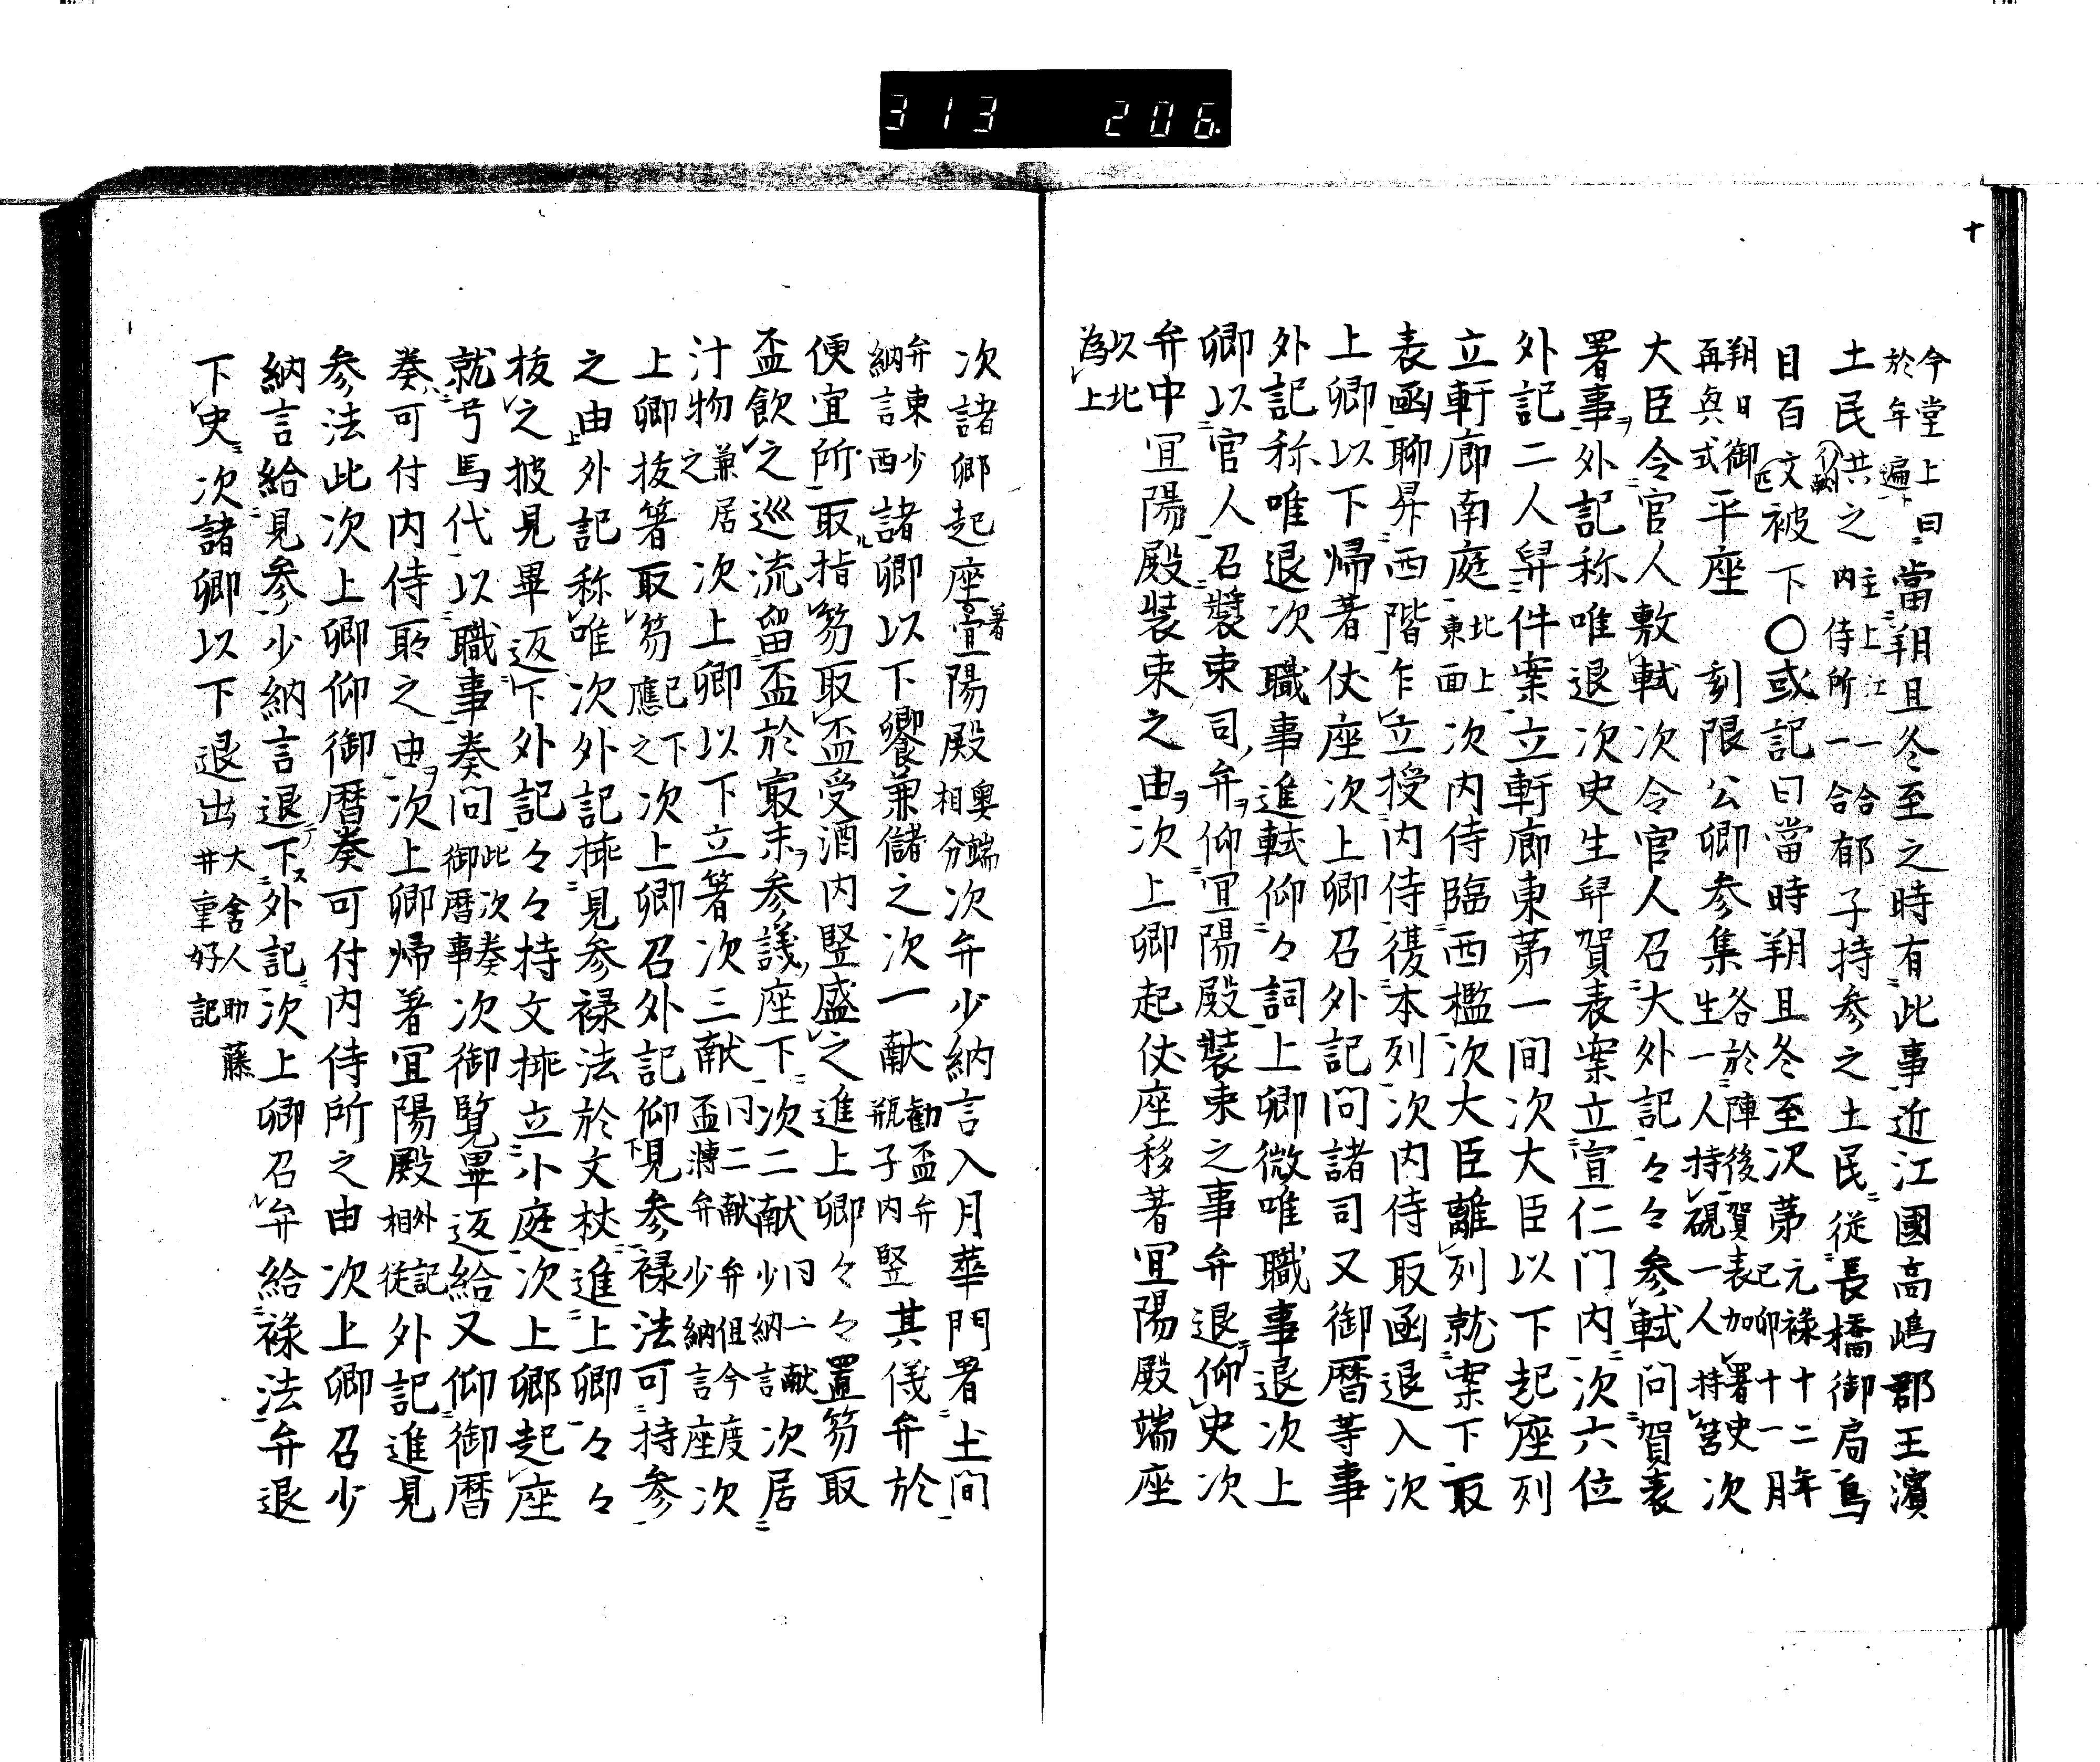 313 206.
十
今堂上曰当朔旦冬至之時有此事近江國高嶋郡王濱
於年遍
土民共之主上江一合郁子持参之土民従長橋御局鳥
内侍所一合
目百文被下〇或記曰當時朔旦冬至次第元禄十二年
己卯十一月
朔日御平座 刻限公卿参集各於陣後賀表加署史次
再興式 生一人持硯一人持筥
大臣令官人敷軾次令官人召大外記々々参軾問賀表
署事外記称唯退次史生舁賀表案立宣仁门内次六位
外記二人舁件案立軒廊東第一间次大臣以下起座列
立軒廊南庭北上次内侍臨西檻次大臣離列就案下取
東面
表函聊昇西階乍立授内侍復本列次内侍取函退入次
上卿以下帰著仗座次上卿召外記问諸司又御暦等事
外記称唯退次職事進軾仰々詞上卿微唯職事退次上
卿以官人召装束司弁仰宜陽殿装束之事弁退仰史次
弁申宜陽殿装束之由次上卿起仗座移著宜陽殿端座
以北
為上
次諸卿起座著宜陽殿奥端次弁少納言入月華門署土间
相分
弁東少諸卿以下饗兼儲之次一献勧盃弁其儀弁於
納言西 瓶子内竪
便宜所取指笏取盃受酒内竪盛之進上卿々々置笏取
盃飲之巡流留盃於冣末参議座下次二献同一献次居
少納言
汁物兼居次上卿以下立箸次三献同二献弁但今度次
之 盃溥弁少納言座
上卿抜箸取笏已下次上卿召外記仰見参禄法可持参
應之
之由外記称唯次外記挿見参禄法於文杖進上卿々々
抜之披見畢返下外記々々持文挿立小庭次上卿起座
就弓馬代以職事奏问此次奏次御覧畢返給又仰御暦
御暦事
奏可付内侍取之由次上卿帰著宜陽殿外記外記進見
相従
参法此次上卿仰御暦奏可付内侍所之由次上卿召少
納言給見参少納言退下外記次上卿召弁給禄法弁退
下史次諸卿以下退出大舍人助藤
井重好記